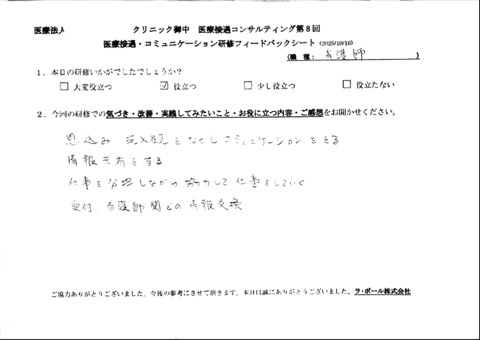 医療法人 クリニック御中 医療接遇コンサルティング第8回
医療接遇・コミュニケーション研修フィードバックシート (2025/10/16)
(職種: 看護師 )
1. 本日の研修いかがでしたでしょうか?
□ 大変役立つ ☑ 役立つ □ 少し役立つ □ 役立たない
2. 今回の研修での気づき・改善・実践してみたいこと・お役に立つ内容・ご感想をお聞かせください。
思込み 先入観をなくしコミュニケーションをとる
情報共有をする
仕事を分担しながら協力して仕事をしていく
受付、看護師間での情報交換
ご協力ありがとうございました。今後の参考にさせて頂きます。本日は誠にありがとうございました。ラ・ポール株式会社